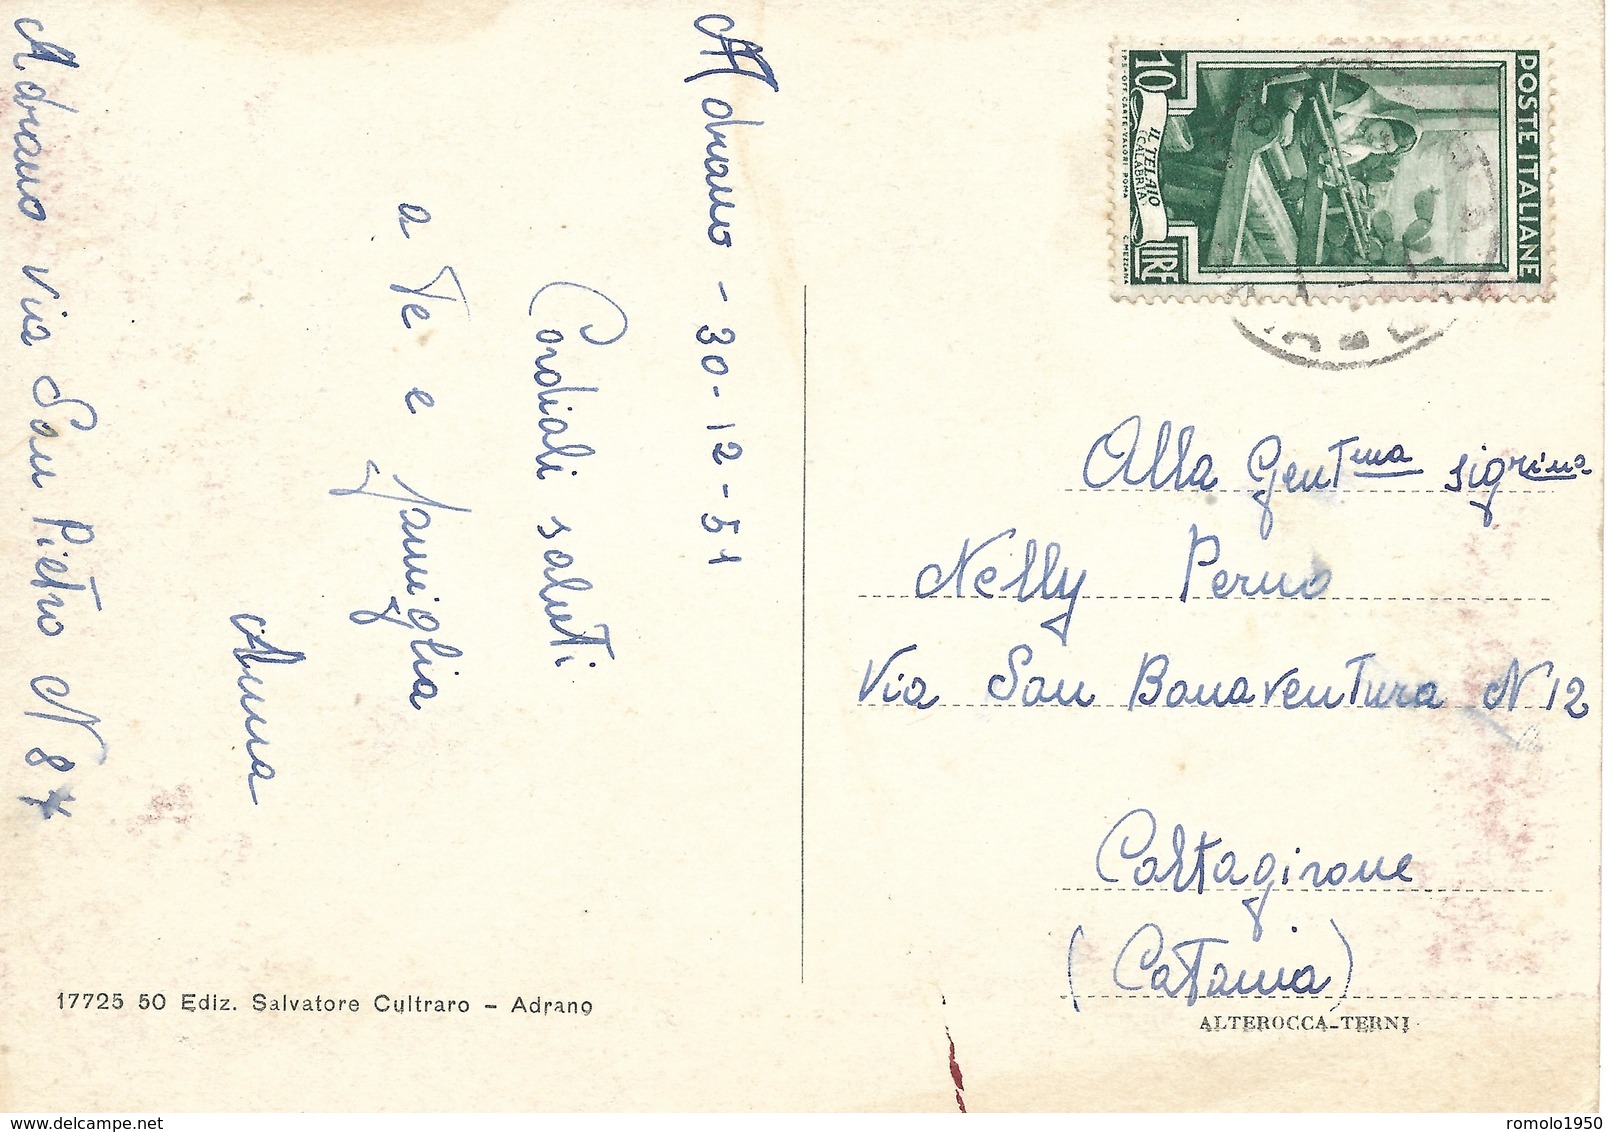 Adrano - 30-12-51
Cordiali saluti
a Te e famiglia
Anna
Adrano Via San Pietro N 87
17725 50 Ediz. Salvatore Cultraro – Adrano
POSTE ITALIANE
10
LIRE
IL TELAIO
(CALABRIA)
I.P.S. OFF. CARTE-VALORI ROMA
C. MEZZANA
Alla Gentma sigrina
Nelly Perno
Via San Bonaventura N 12
Caltagirone
(Catania)
ALTEROCCA-TERNI
romolo1950